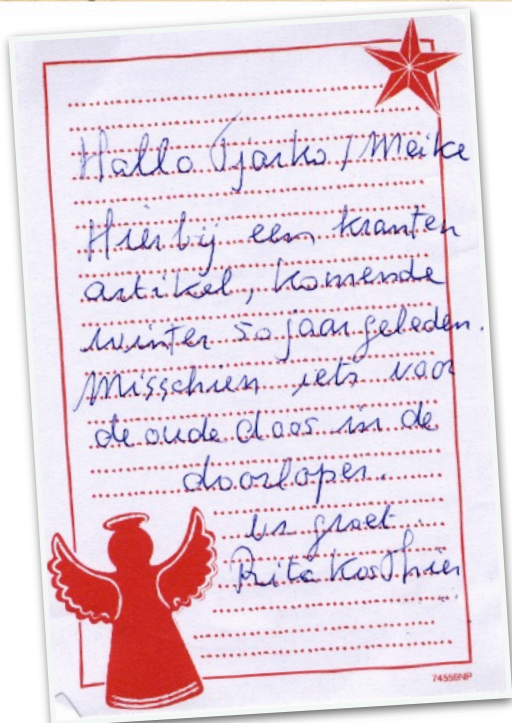 Hallo Tjarko / Meike
Hierbij een kranten
artikel, komende
winter 50 jaar geleden.
Misschien iets voor
de oude doos in de
doorloper.
groet
Rita Kos
74559NP